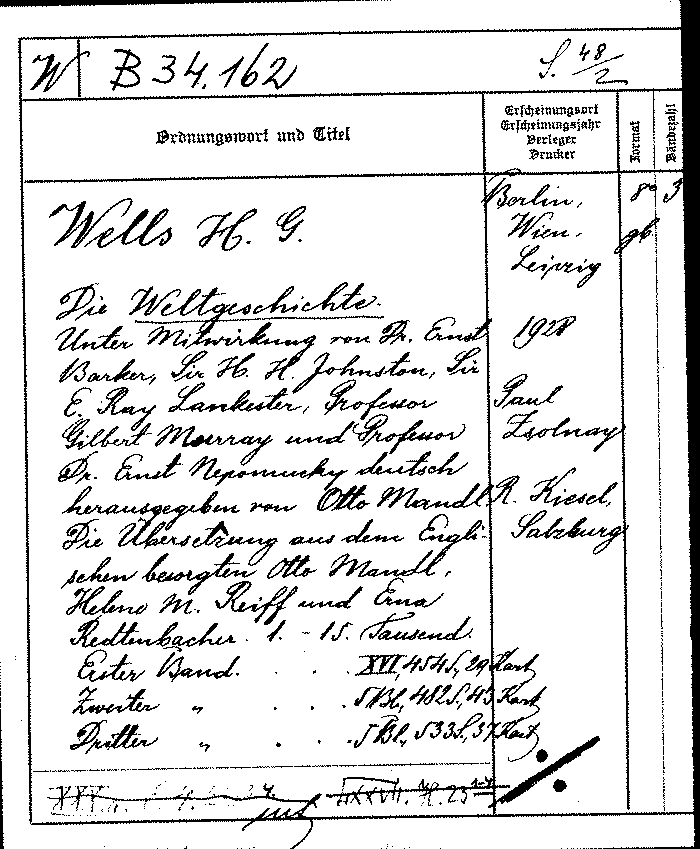 W B 34.162 S. 48/2
Ordnungswort und Titel
Erscheinungsort
Erscheinungsjahr
Verleger
Drucker
Format
Bändezahl
Wells H. G.
Berlin,
Wien.
Leipzig
8° 3
gb
Die Weltgeschichte.
Unter Mitwirkung von Dr. Ernst
Barker, Sir H. H. Johnston, Sir
E. Ray Lankester, Professor
Gilbert Murray und Professor
Dr. Ernst Nepomucky deutsch
herausgegeben von Otto Mandl.
Die Übersetzung aus dem Engli-
schen besorgten Otto Mandl,
Helene M. Reiff und Erna
Redtenbacher. 1. - 15. Tausend.
Erster Band. . . XVI, 454 S, 29 Kart
Zweiter „ . . 5 Bl, 482 S, 43 Kart
Dritter „ . . 5 Bl, 533 S, 37 Kart
1928
Paul
Zsolnay
R. Kiesel,
Salzburg